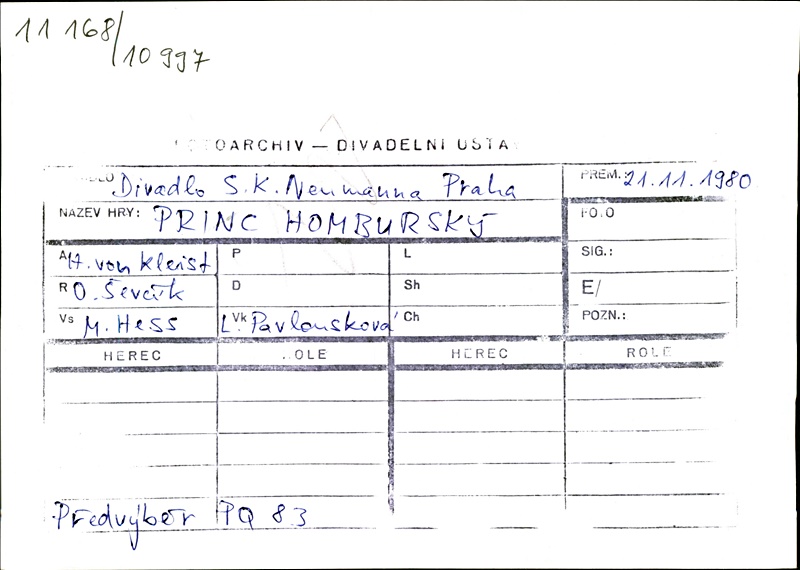 11 168/
10 997
FOTOARCHIV — DIVADELNÍ ÚSTAV
Divadlo S. K. Neumanna Praha PREM.: 21.11.1980
NÁZEV HRY: PRINC HOMBURSKÝ FOTO
A H. von Kleist P L SIG.:
R O. Ševčík D Sh E/
Vs M. Hess Vk L. Pavlousková Ch POZN.:
HEREC ROLE HEREC ROLE
Předvýběr PQ 83